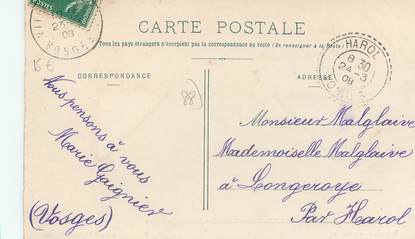 CARTE POSTALE
Tous les pays étrangers n'acceptent pas la correspondance au recto (Se renseigner à la Poste)
CORRESPONDANCE
ADRESSE
VOSGES
23
08
HAROL
8 30
24 -3
08
15 €
88
Nous pensons à vous
Marie Gaignier
(Vosges)
Monsieur Malglaive
Mademoiselle Malglaive
à Longeroye
Par Harol